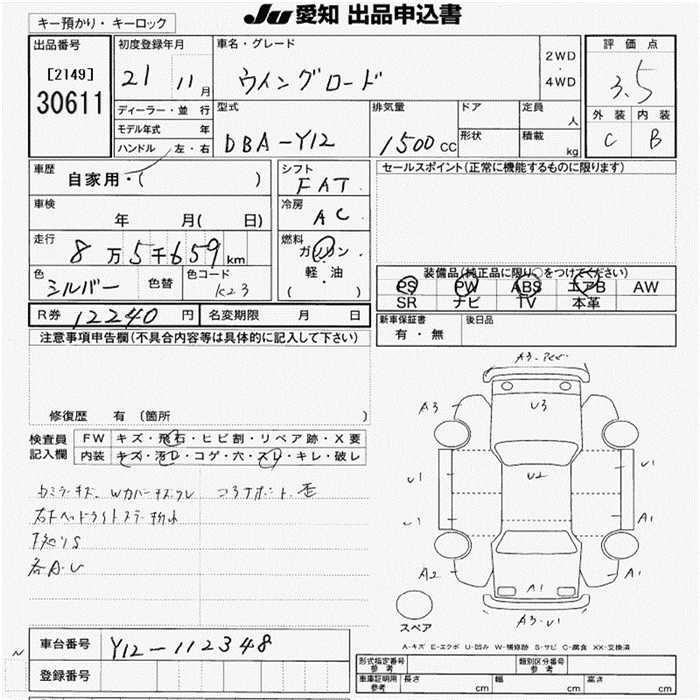 キー預かり・キーロック
Ju 愛知 出品申込書
出品番号
[2149]
30611
初度登録年月
21 11月
ディーラー・並行
モデル年式 年
ハンドル 左・右
車名・グレード
ウイングロード
2WD
・
4WD
型式
DBA-Y12
排気量
1500cc
ドア
形状
定員
人
積載
kg
評価点
3.5
外装 内装
C B
車歴
自家用・( )
車検
年 月( 日)
走行
8万5千659km
色
シルバー
色替
色コード
K23
シフト
FAT
冷房
AC
燃料
ガソリン
・
軽・油
( )
セールスポイント(正常に機能するものに限ります)
装備品(純正品に限り○をつけてください)
PS PW ABS エアB AW
SR ナビ TV 本革
R券 12240円 名変期限 月 日
新車保証書
有・無
後日品
注意事項申告欄(不具合内容等は具体的に記入して下さい)
修復歴 有(箇所 )
検査員
記入欄
FW キズ・飛石・ヒビ割・リペア跡・X要
内装 キズ・汚レ・コゲ・穴・スレ・キレ・破レ
各A.U
A3
A3
U3
U1
U2
U1
U1
A1
A2
A1
A1
A3.U1
スペア
A-キズ E-エクボ U-凹み W-補修跡 S-サビ C-腐食 XX-交換済
車台番号 Y12-112348
登録番号
形式指定番号
参考
類別区分番号
参考
車庫証明用
参考
長さ cm 幅 cm 高さ cm